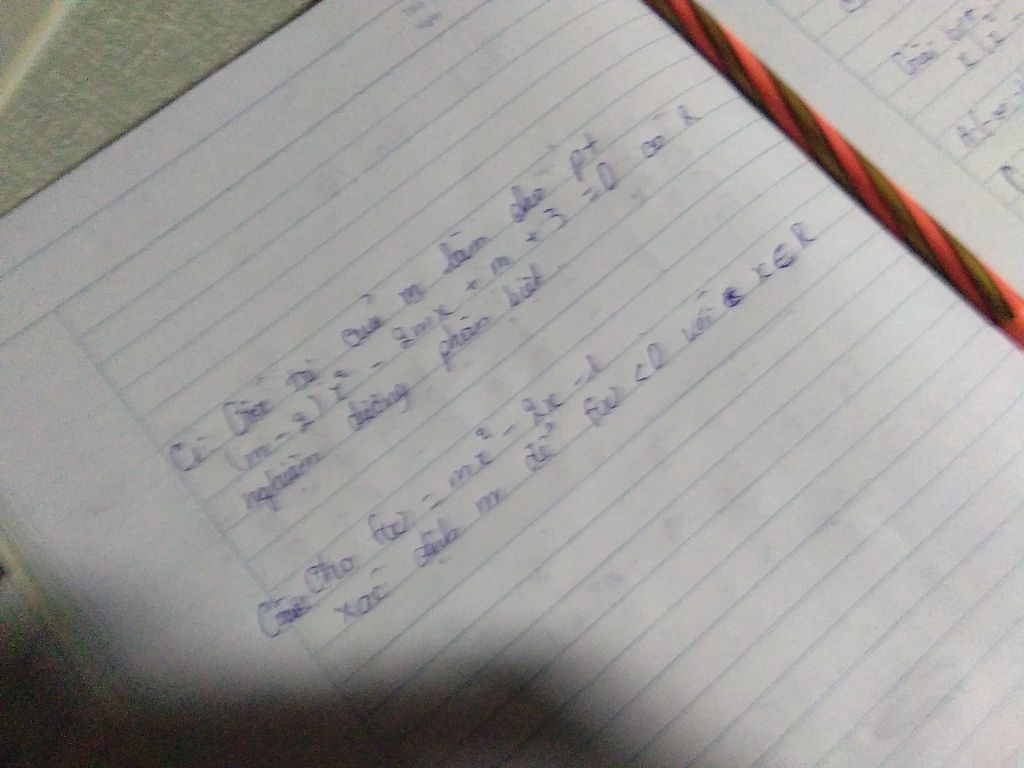 Các trị của m làm cho pt
(m - 2)x² - 2mx + m + 3 = 0 có 2
nghiệm dương phân biệt
Câu Cho f(x) = mx² - 2x - 1
xác định m để f(x) < 0 với x ∈ R